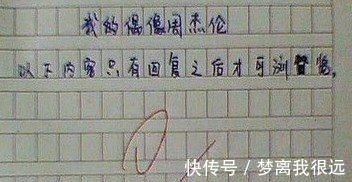 我的偶像周杰伦
以下内容只有回复之后才可浏览。
快传号 / 梦离我很远